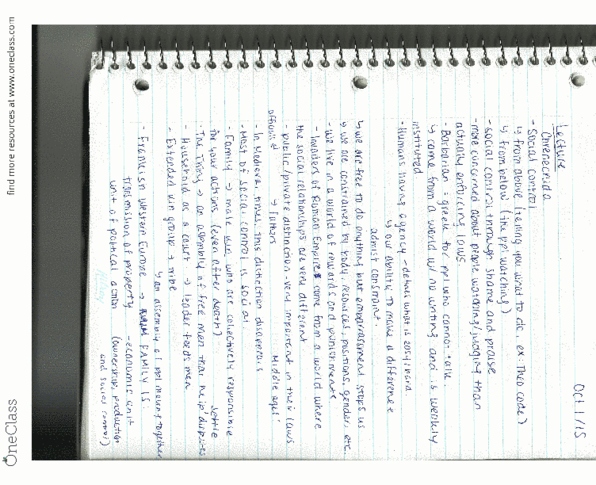 find more resources at www.oneclass.com
OneClass
Oct 1/15
Lecture
- Social control
↳ from above (telling you what to do, ex. Theo code)
↳ from below (the ppl watching)
- social control through shame and praise
- more concerned about people watching/judging than
actually enforcing laws.
- Barbarian = greek for ppl who cannot talk
↳ come from a world w/ no writing and is weakly
instituted
- Humans having agency - debate what is
↳ our ability to make a difference
admist constraint.
↳ we are free to do anything but embarrassment stops us
↳ we are constrained by body, resources, positions, gender, etc.
- we live in a world of rewards and punishments
- Invaders of Roman Empire come from a world where
the social relationships are very different
- public/private distinction - very important in their laws
official → fathers
Middle ages
- In Medieval times, this distinction disappears
- Most of social control is social
- Family → male kin who are collectively responsible
for your actions. (even after death) settle
- The Thing → an assembly of free men that help disputes
- Household as a court → leader feeds men
- Extended kin group → tribe
↳ an assembly of ppl moving together
- Frenkish Western Europe → FAMILY IS
transmission of property - economic unit
unit of political action (ownership, production
and social control)